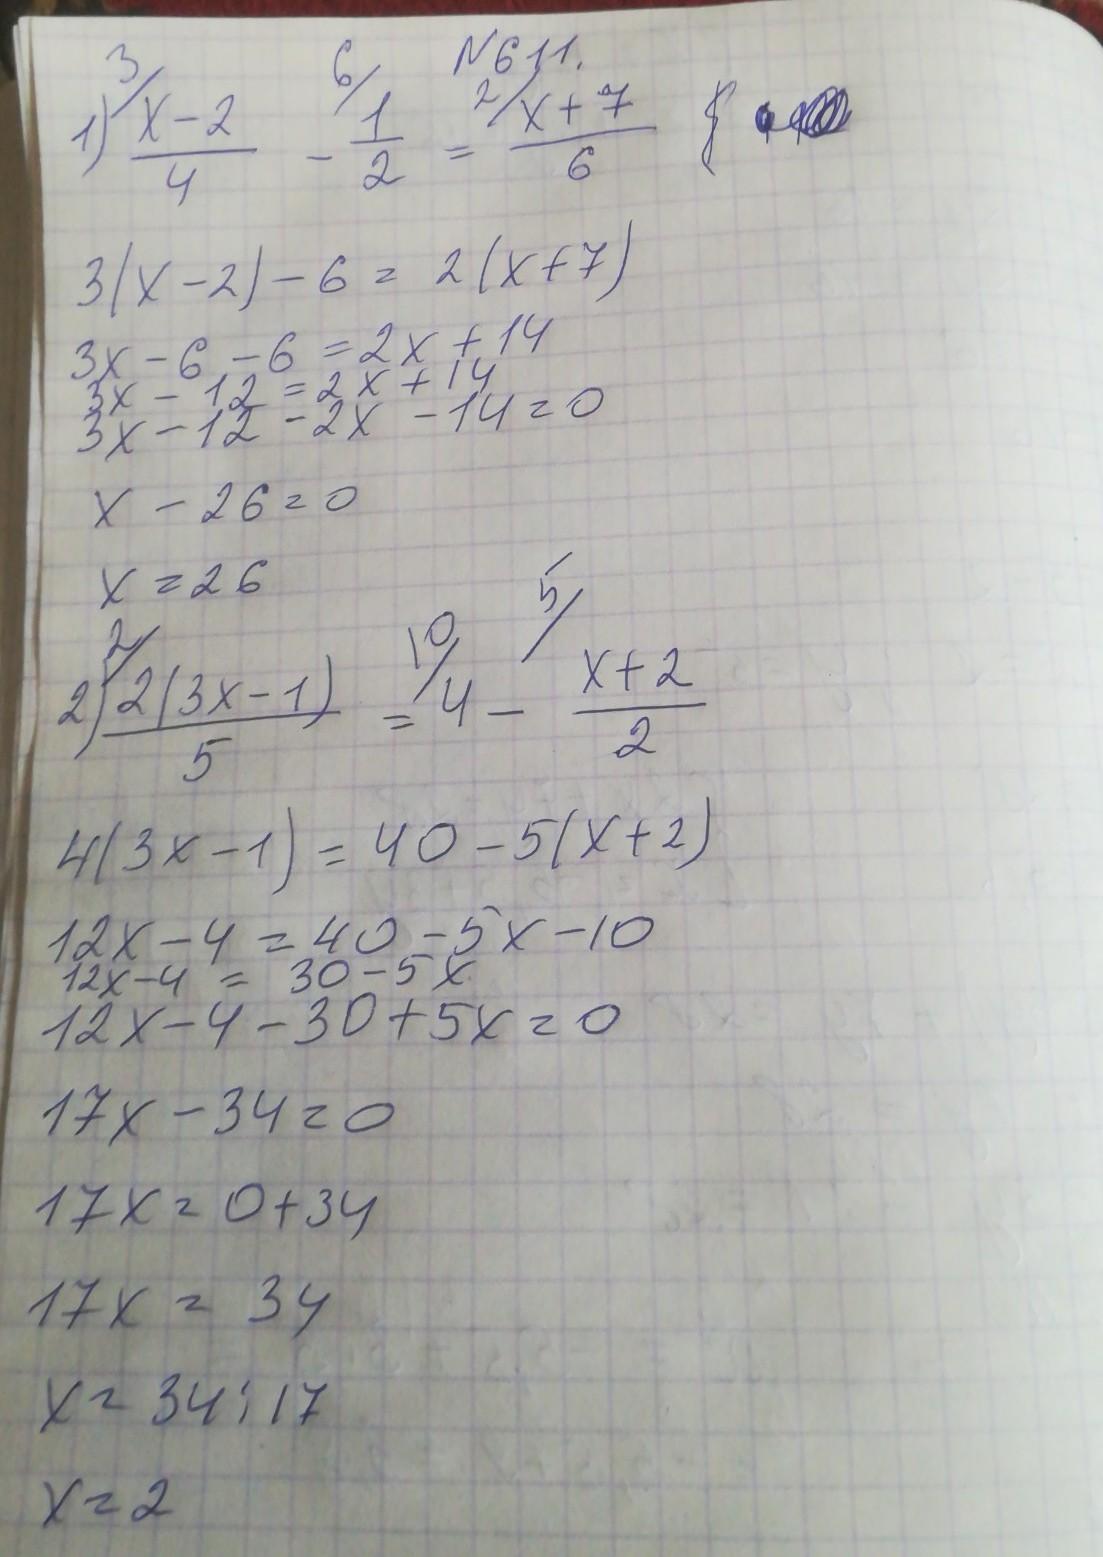 N611.
1) 3/ (x-2)/4 - 6/ 1/2 = 2/ (x+7)/6
3(x-2)-6= 2(x+7)
3x-6-6=2x+14
3x-12=2x+14
3x-12-2x-14=0
x-26=0
x=26
2) 2/ 2(3x-1)/5 = 10/ 4 - 5/ (x+2)/2
4(3x-1)=40-5(x+2)
12x-4=40-5x-10
12x-4=30-5x
12x-4-30+5x=0
17x-34=0
17x=0+34
17x=34
x=34:17
x=2